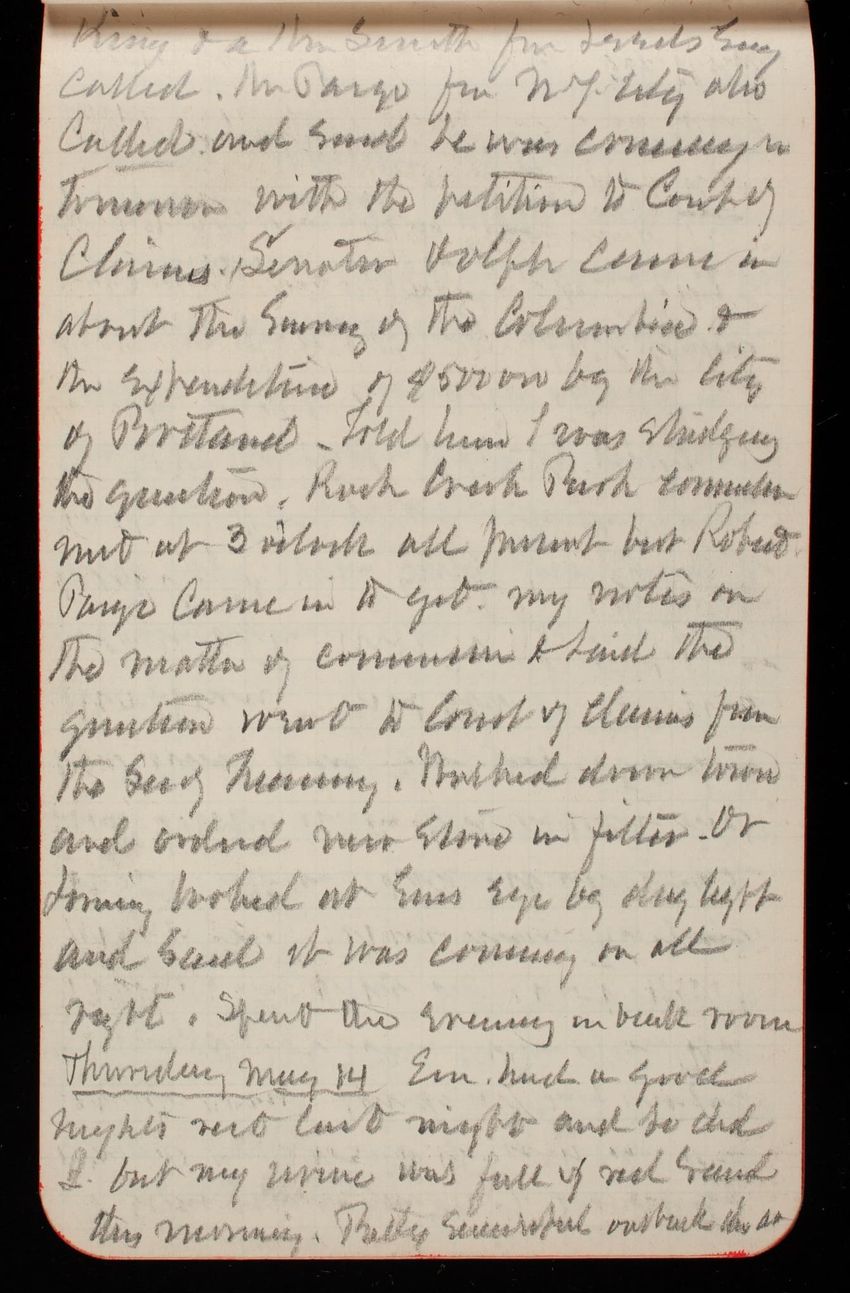 King & a Mr Smith from
called. Mr Paige from N Y City also
called and said he was coming in
tomorrow with the petition to Court of
Claims. Senator Dolph came in
about the Survey of the Columbia &
the expenditure of $50000 by the City
of Portland. Told him I was studying
the question. Rock Creek Park commission
met at 3 o'clock all present but Robert.
Paige came in to get my notes on
the matter of & said the
question went to Court of Claims from
the Secy Treasury. Walked down town
and ordered new stone in filter. Dr
Loring looked at Ems eye by day light
and said it was coming on all
right. Spent the evening in back room
Thursday May 14 Em. had a good
nights rest last night and so did
I. but my urine was full of red sand
this morning. Pretty outback